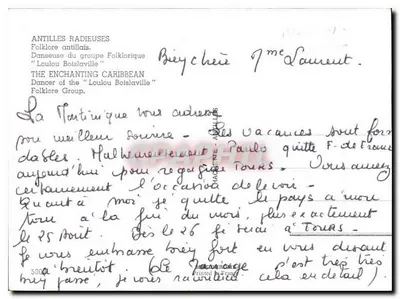 ANTILLES RADIEUSES
Folklore antillais.
Danseuse du groupe Folklorique
"Loulou Boislaville"
THE ENCHANTING CARIBBEAN
Dancer of the "Loulou Boislaville"
Folklore Group.
Bien Chère Mme Laurent.
La Martinique vous adresse
son meilleur sourire - Les vacances sont for
dables. Malheureusement Paulo quitte F. de France
aujourd'hui pour regagner TOURS. Vous aurez
certainement l'occasion de le voir.
Quant à moi je quitte le pays à mon
tour à la fin du mois, plus exactement
le 25 Août. Dès le 26 je serai à TOURS.
Je vous embrasse bien fort en vous disant
à bientôt. (Le mariage s'est très très
bien passé, je vous raconterai cela en détail).